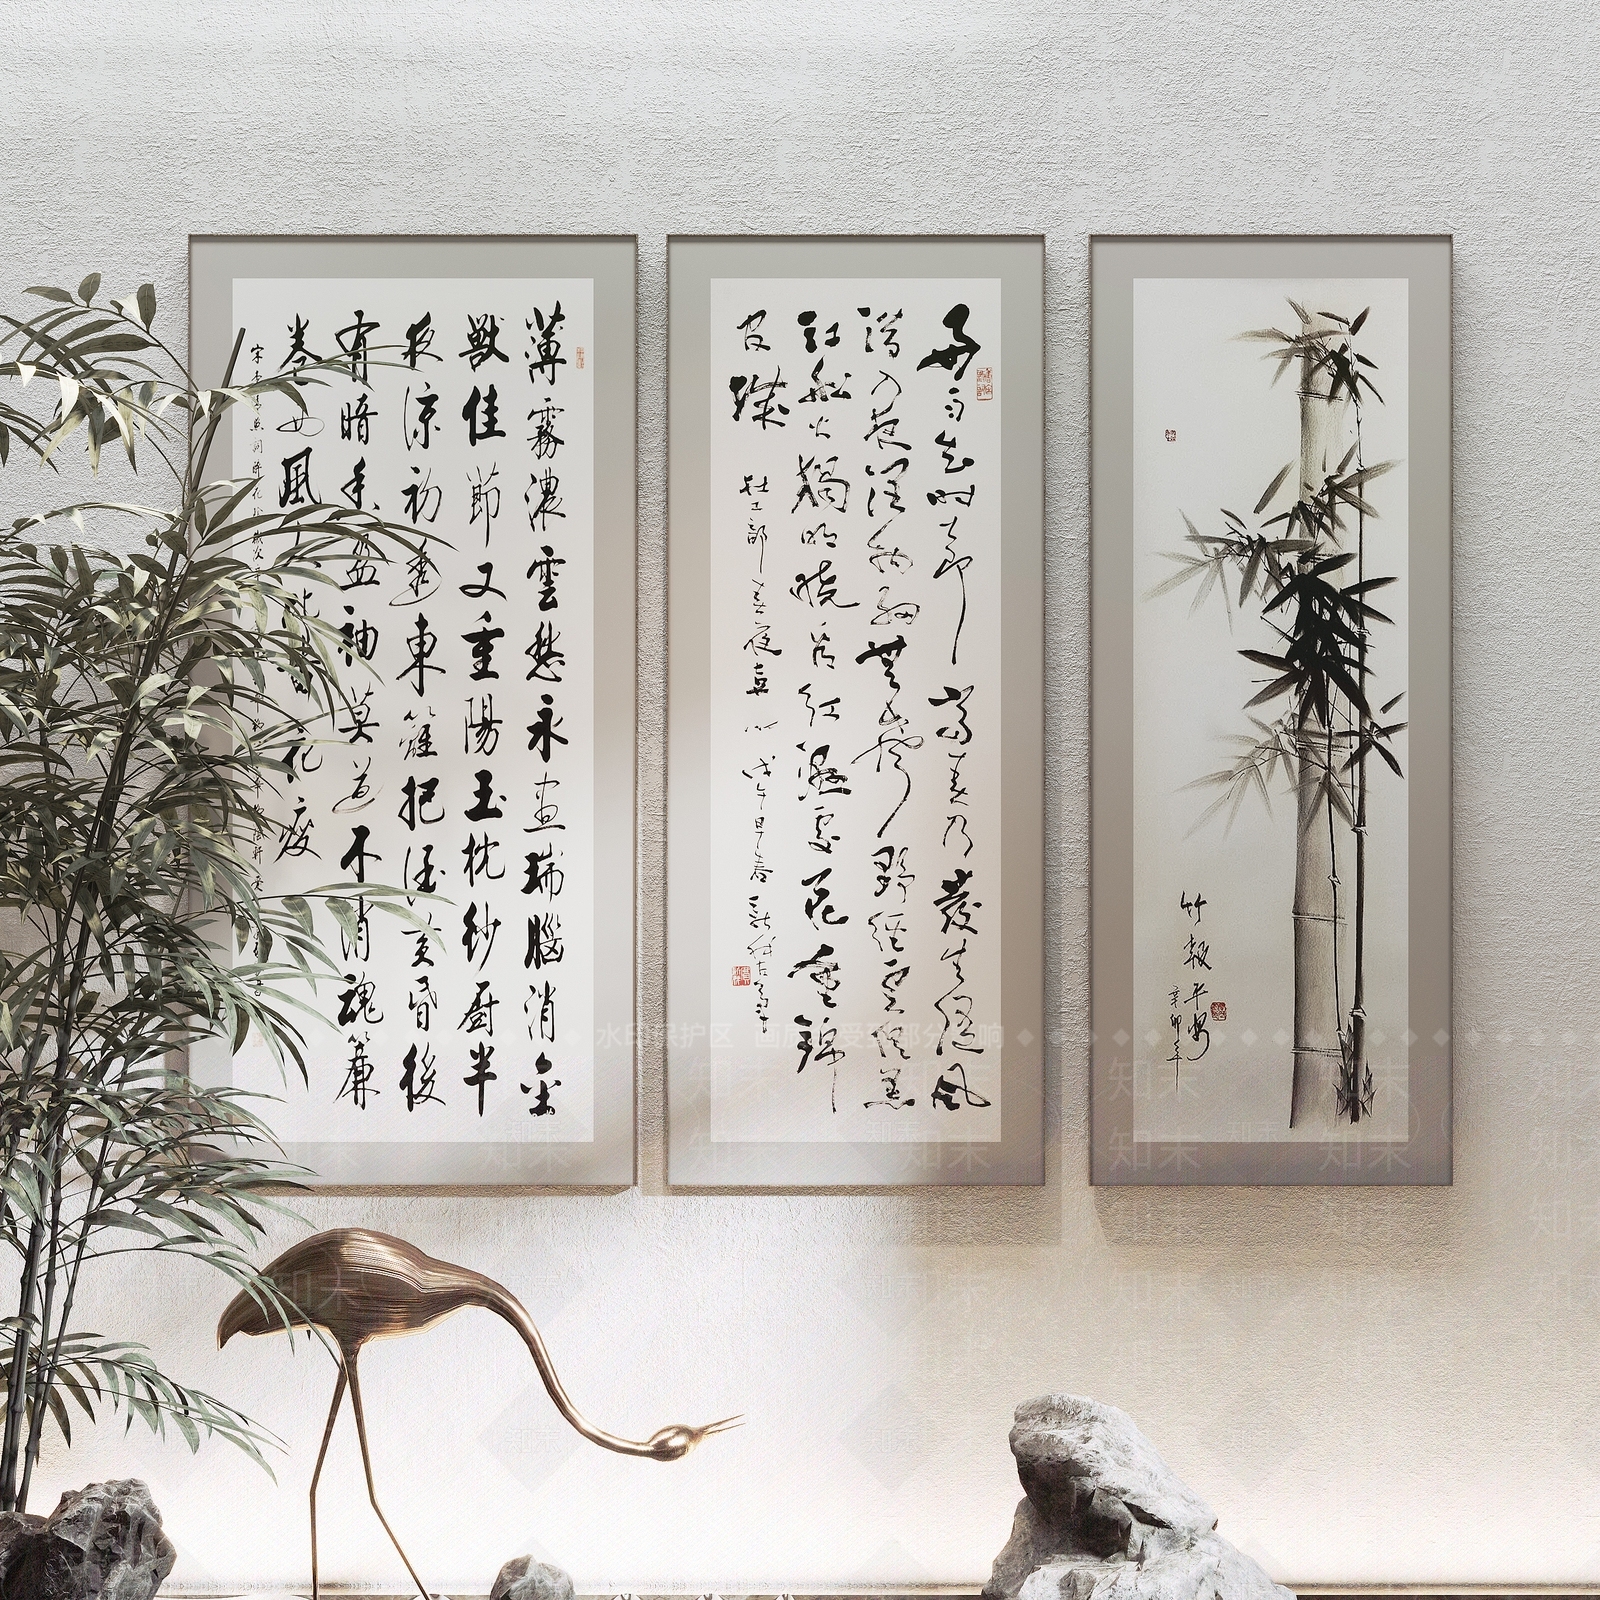 薄霧濃雲愁永晝瑞腦消金
獸佳節又重陽玉枕紗廚半
夜涼初透東籬把酒黃昏後
有暗香盈袖莫道不消魂簾
卷西風人比黃花瘦
宋李清照詞醉花陰歲次
好雨知時節當春乃發生隨風
潛入夜潤物細無聲野徑雲俱黑
江船火獨明曉看紅濕處花重錦
官城
杜工部春夜喜雨 戊午早春
竹報平安
辛卯年
水印保护区 画质会受到部分影响
知末